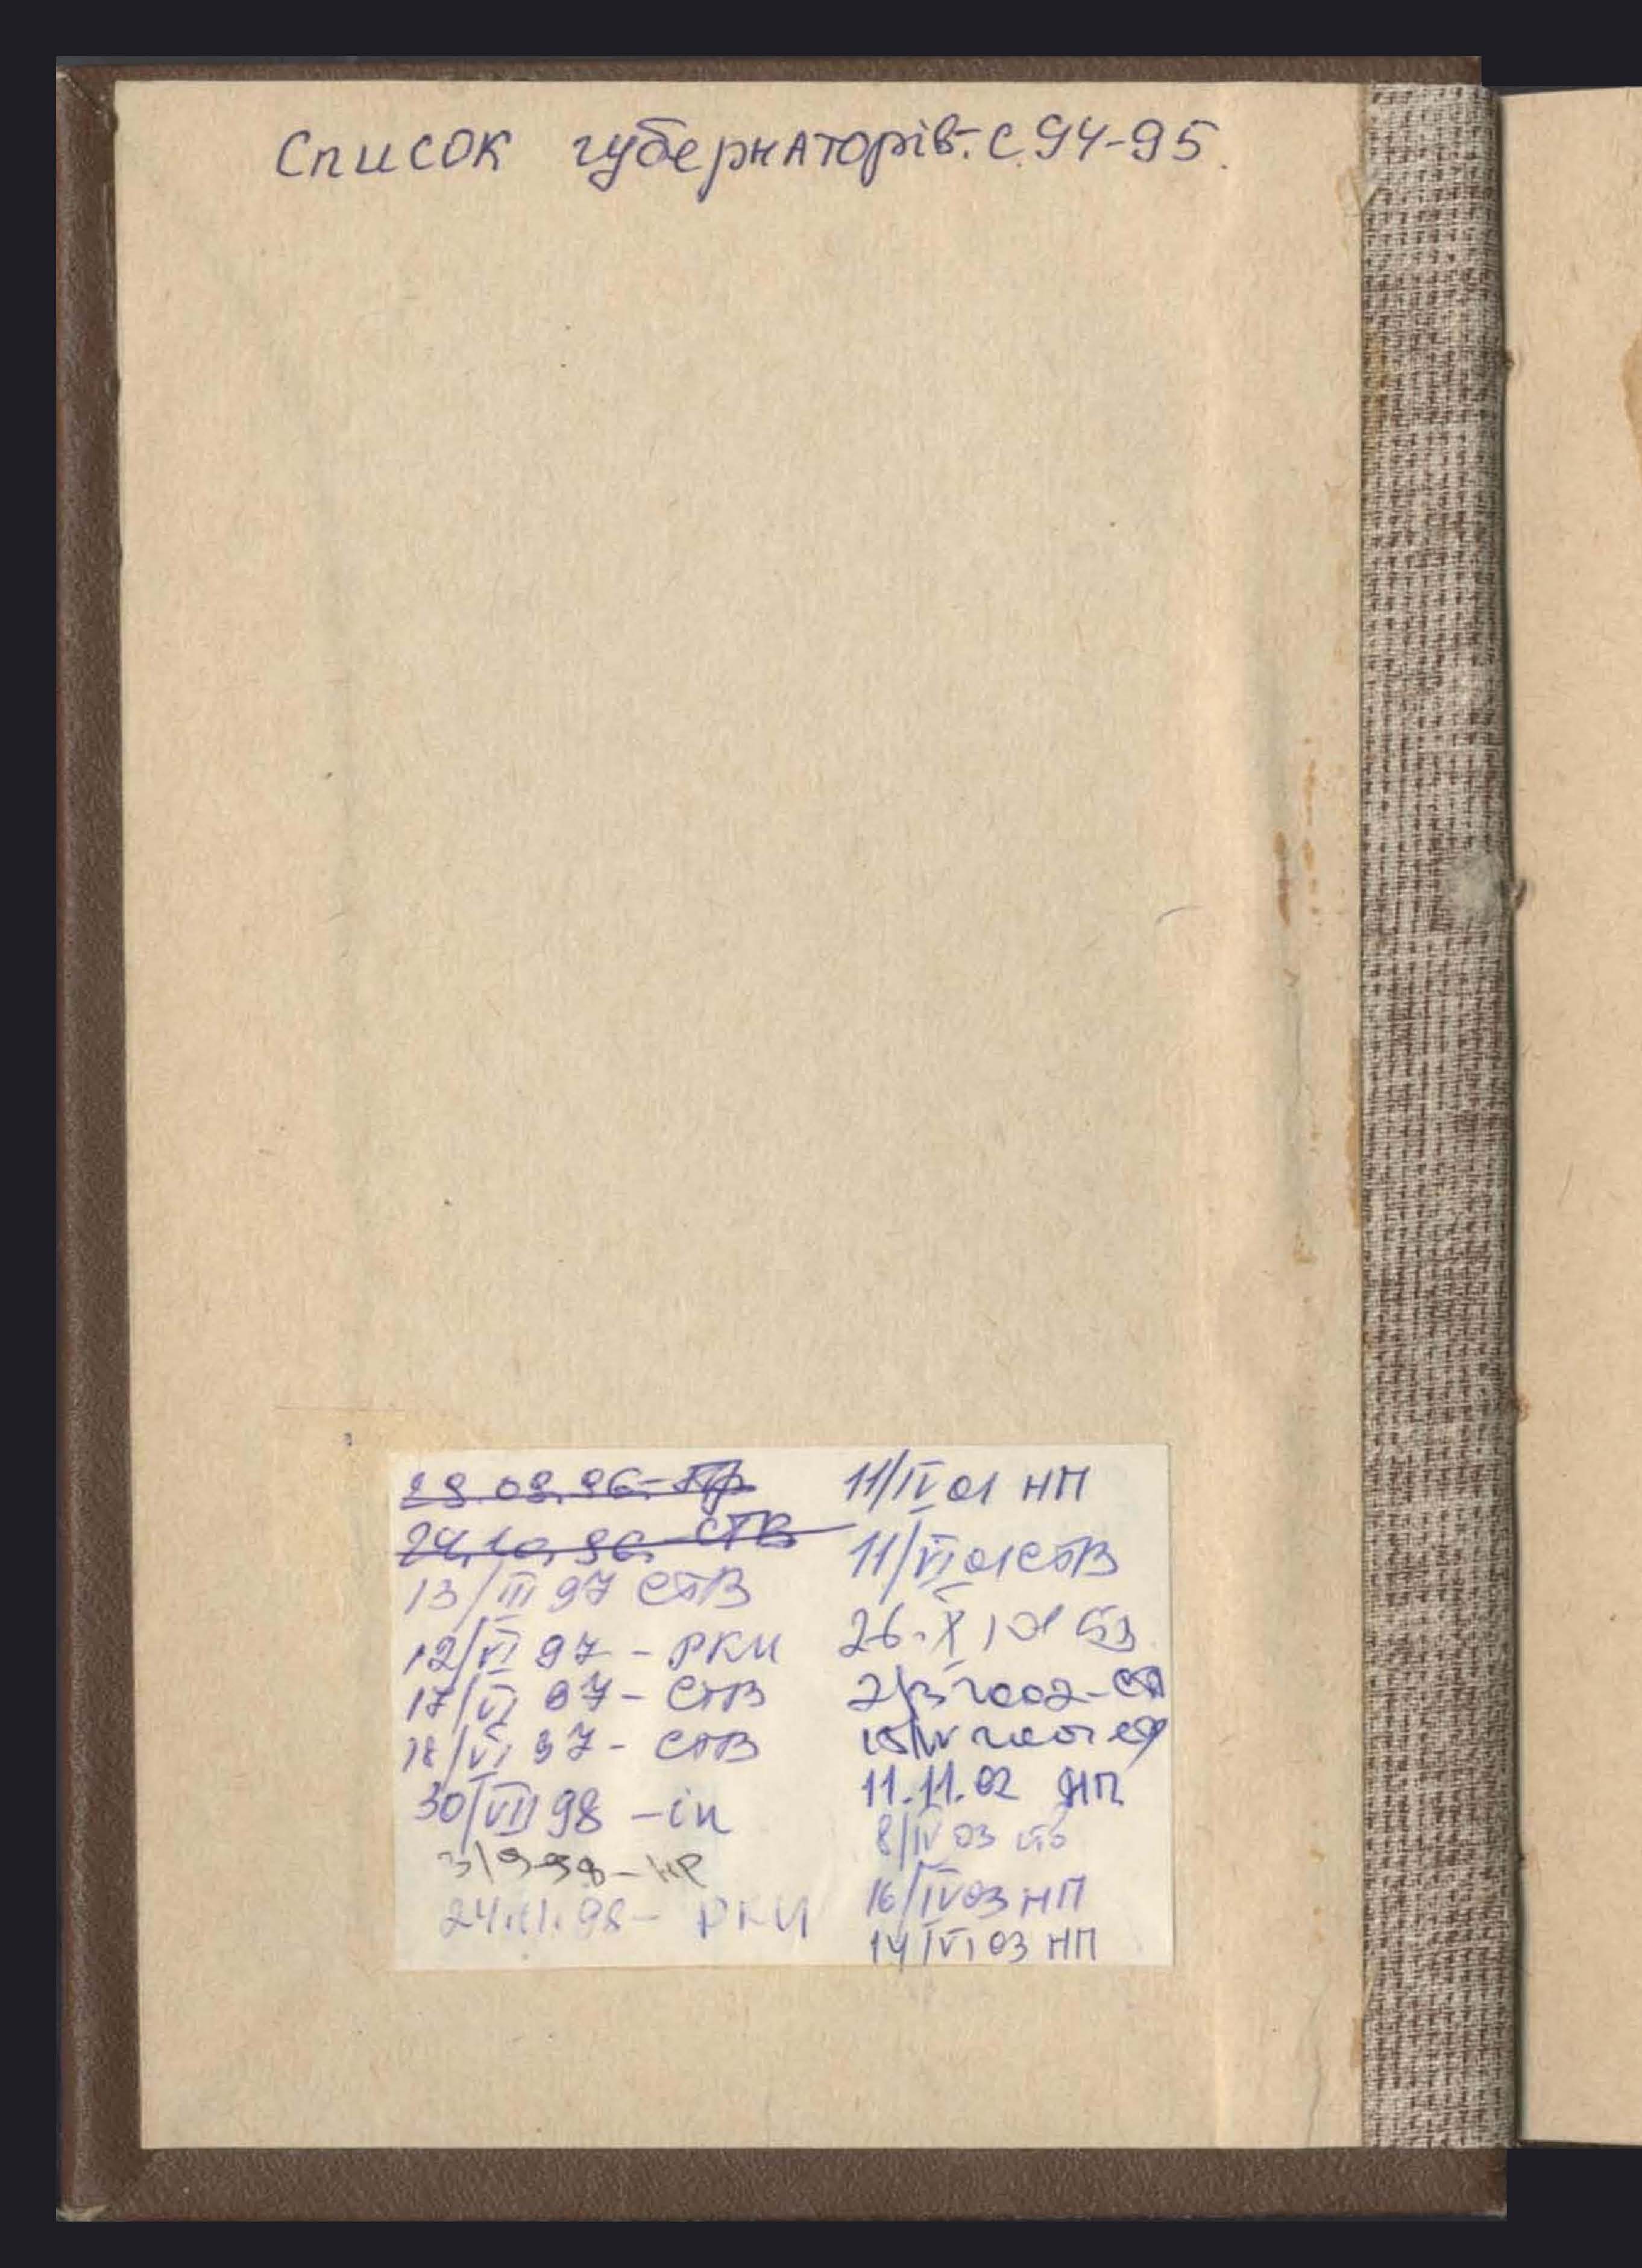 Список губернаторів: с. 94-95.
24.10.96.-СТВ
13/III 97 СТВ
12/VI 97 - РКИ
17/VI 97 - СТВ
18/VI 97 - СТВ
30/VII 98 - ін
24.11.98 - РКИ
11/IV 01 НП
11/VI 01 СТВ
26.X
2002
11.11.02 НП
8/IV 03
16/IV 03 НП
14/VI 03 НП